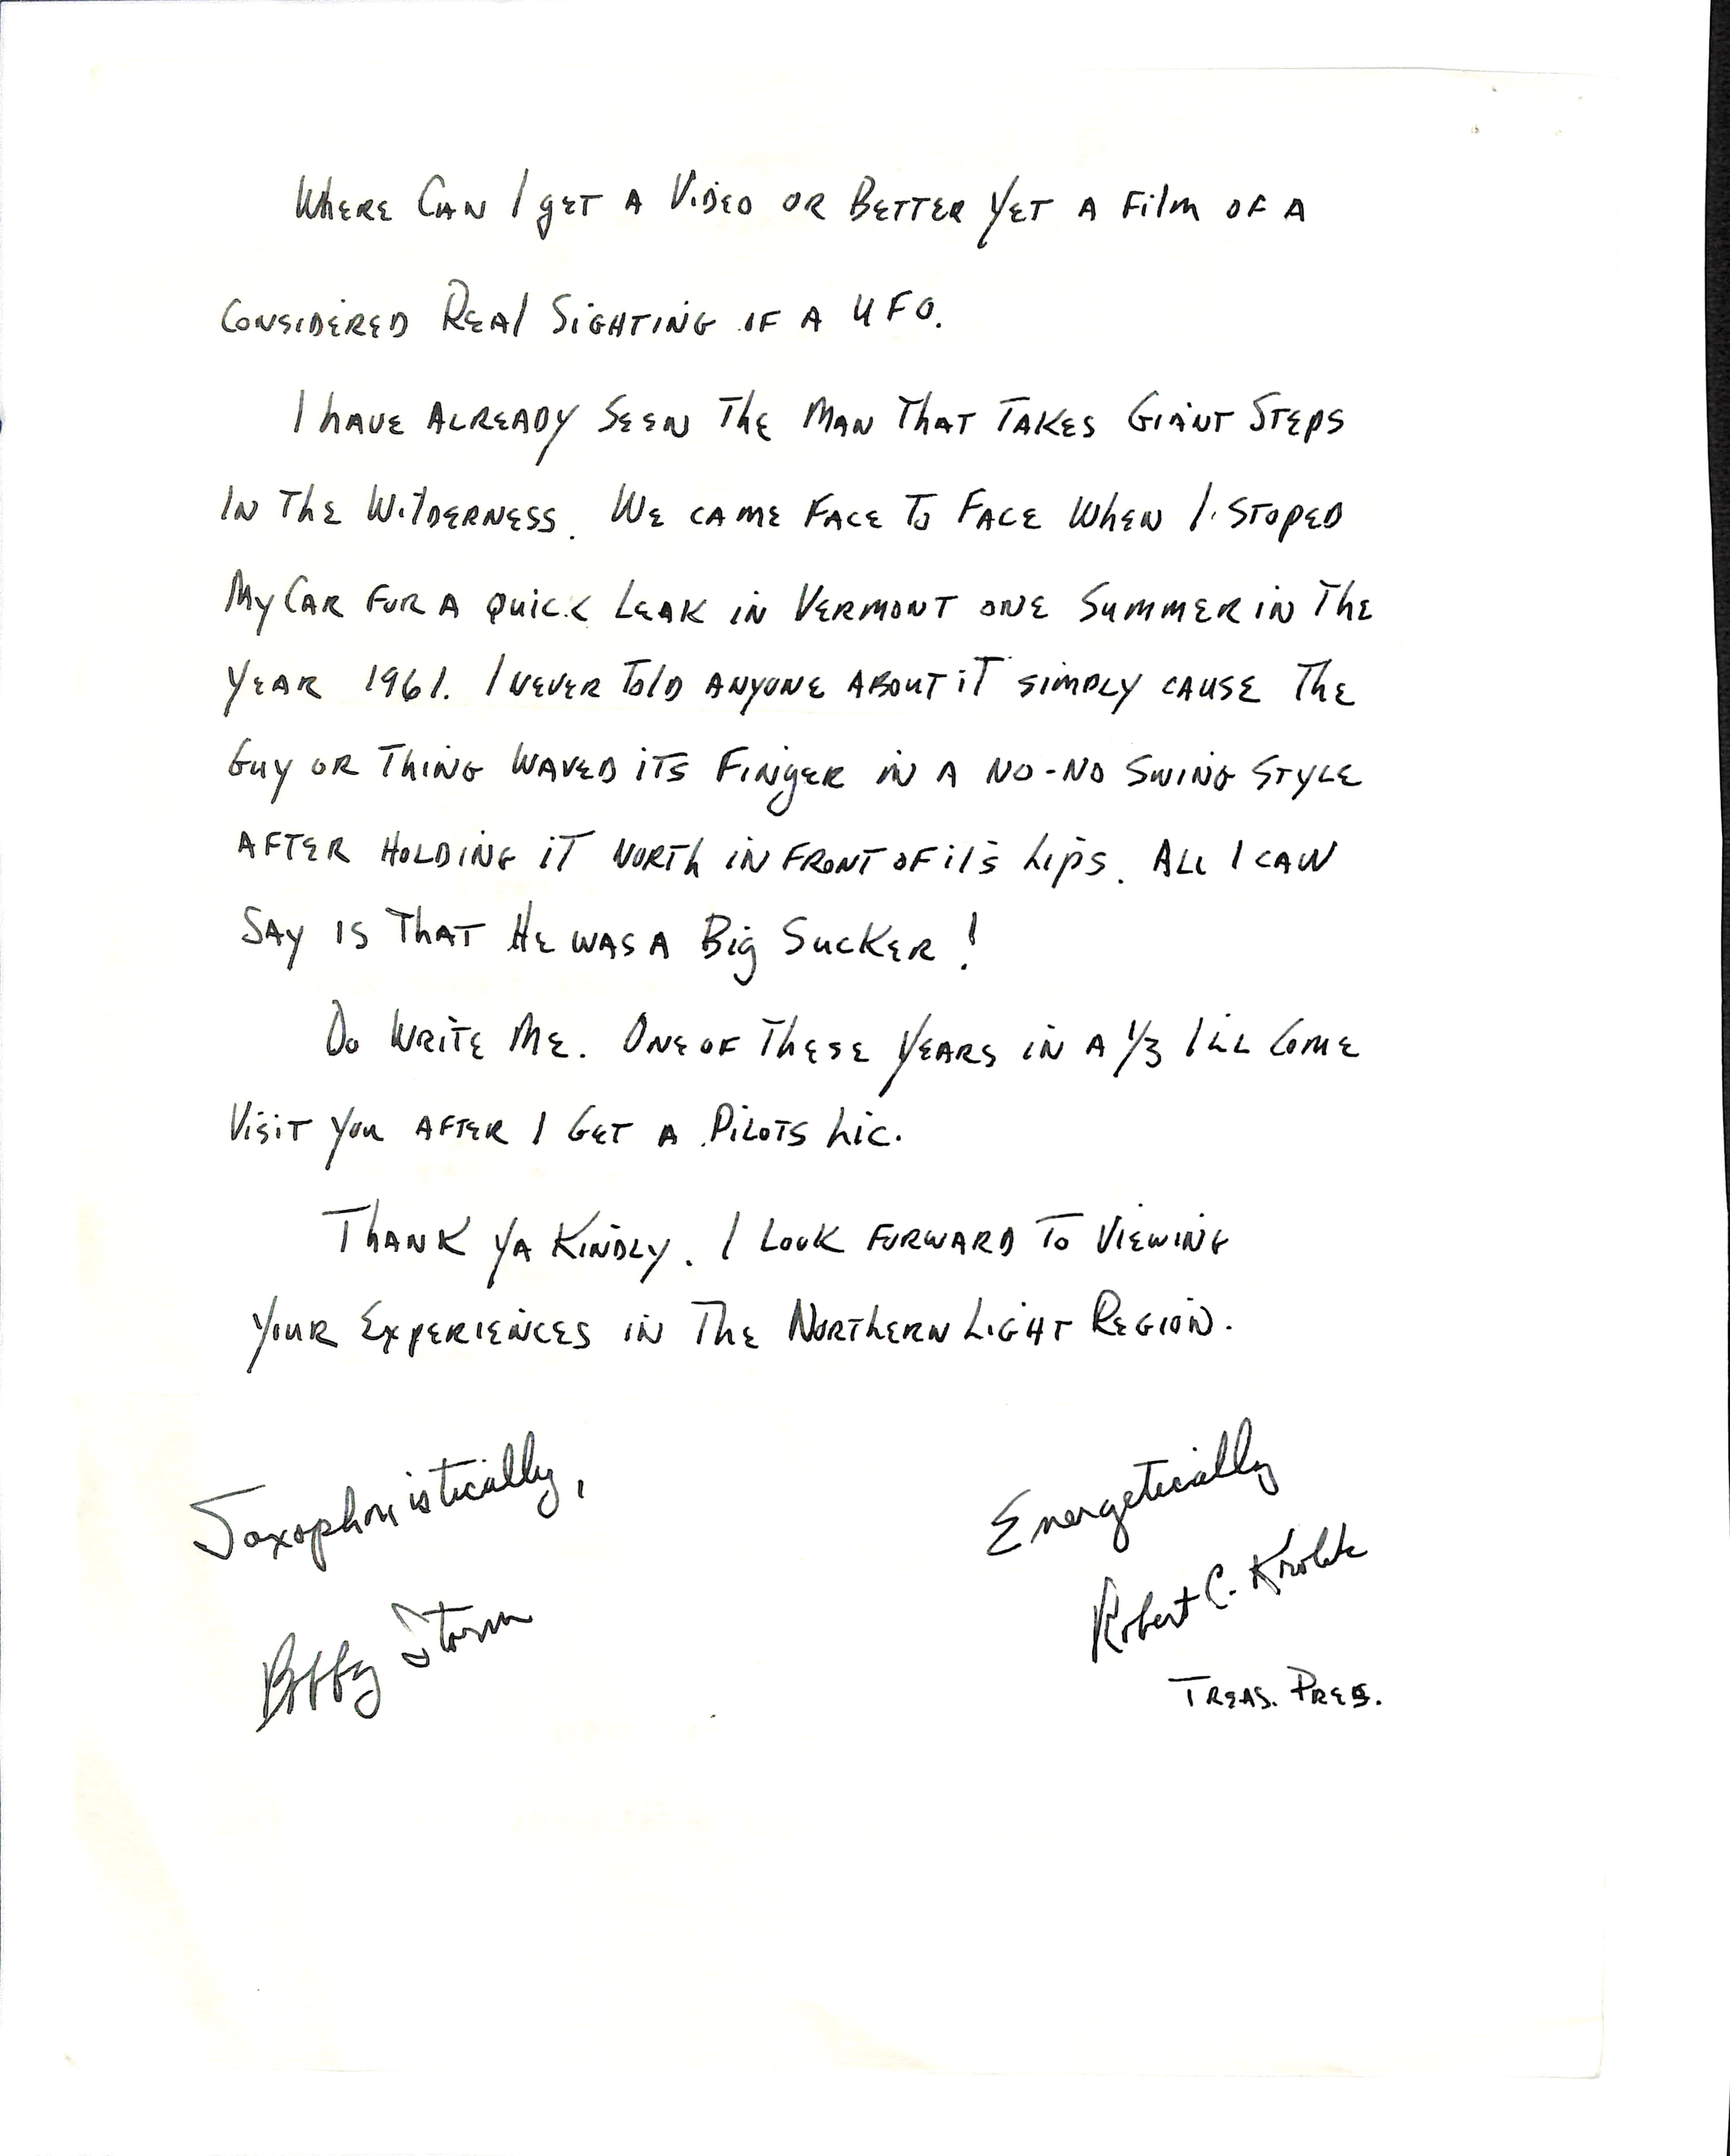 Where Can I get A Video or Better Yet A Film of A
Considered Real Sighting of A UFO.
I have Already Seen The Man That Takes Giant Steps
In The Wilderness. We came Face To Face When I stoped
My Car For A Quick Leak in Vermont one Summer in The
Year 1961. I never Told Anyone About iT simply cause The
Guy or Thing Waved iTs Finger in A No-No Swing Style
After Holding iT North in Front of it's Lips. All I can
Say is That He was A Big Sucker!
Do Write Me. One of These Years in A 1/3 I'll Come
Visit You After I Get A Pilots Lic.
Thank Ya Kindly. I Look Forward To Viewing
Your Experiences in The Northern Light Region.
Saxophonistically,
Bobby Storm
Energetically
Robert C.
Treas. Pres.